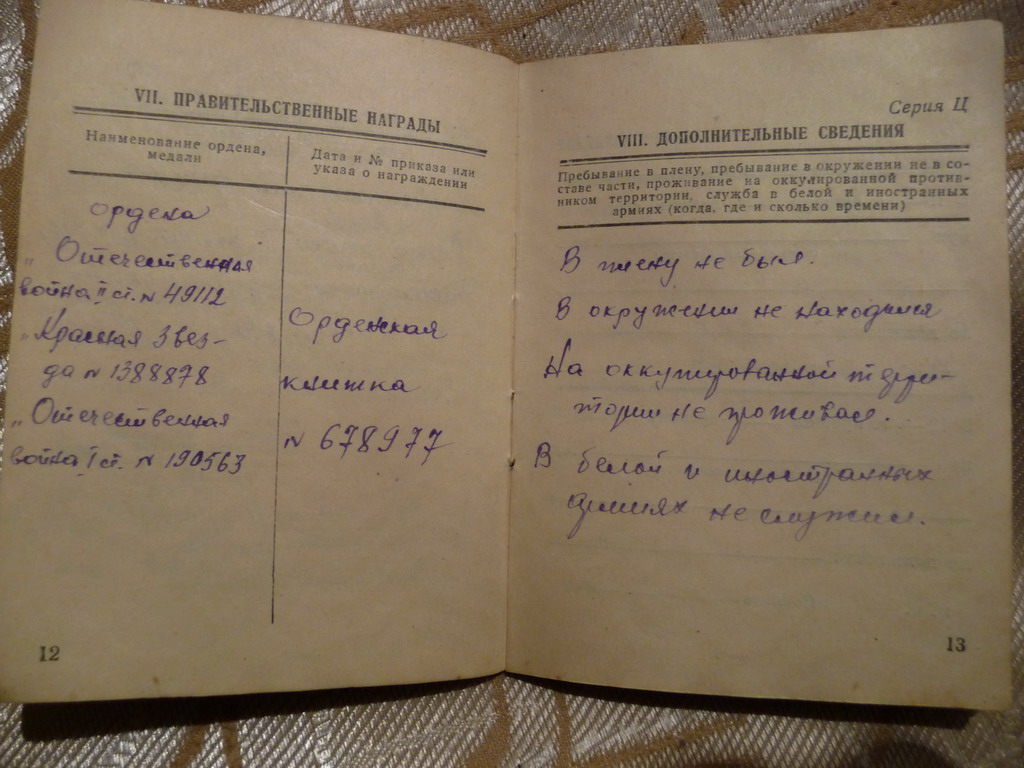 VII. ПРАВИТЕЛЬСТВЕННЫЕ НАГРАДЫ
Наименование ордена,
медали
Дата и № приказа или
указа о награждении
ордена
„Отечественная
война" II ст. № 49112
„Красная Звез-
да № 1388878
„Отечественная
война I ст. № 190563
Орденская
книжка
№ 678977
12
Серия Ц
VIII. ДОПОЛНИТЕЛЬНЫЕ СВЕДЕНИЯ
Пребывание в плену, пребывание в окружении не в со-
ставе части, проживание на оккупированной против-
ником территории, служба в белой и иностранных
армиях (когда, где и сколько времени)
В плену не был.
В окружении не находился
На оккупированной терри-
тории не проживал.
В белой и иностранных
армиях не служил.
13